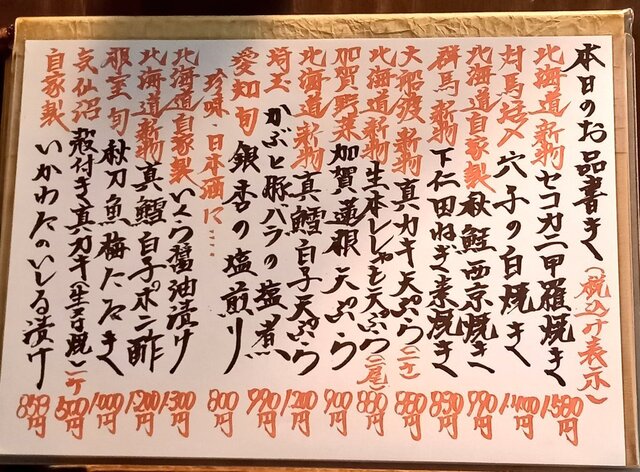 本日のお品書き(税込み表示)
北海道新物 セコガニ甲羅焼き 1580円
対馬活〆 穴子の白焼き 1400円
北海道自家製 秋鮭西京焼き 990円
群馬新物 下仁田ねぎ素焼き 890円
大船渡新物 真カキ天ぷら(二ケ) 880円
北海道新物 生本ししゃも天ぷら(二尾) 880円
加賀野菜 加賀蓮根天ぷら 900円
北海道新物 真鱈白子天ぷら 1200円
埼玉 かぶと豚バラの塩煮 990円
愛知旬 銀杏の塩煎り 800円
珍味・日本酒に…
北海道自家製 いくら醤油漬け 1300円
北海道新物 真鱈白子ポン酢 1200円
根室旬 秋刀魚梅たたき 1000円
気仙沼 殻付き真カキ(生or焼)一ケ 500円
自家製 いかわたのいしる漬け 858円